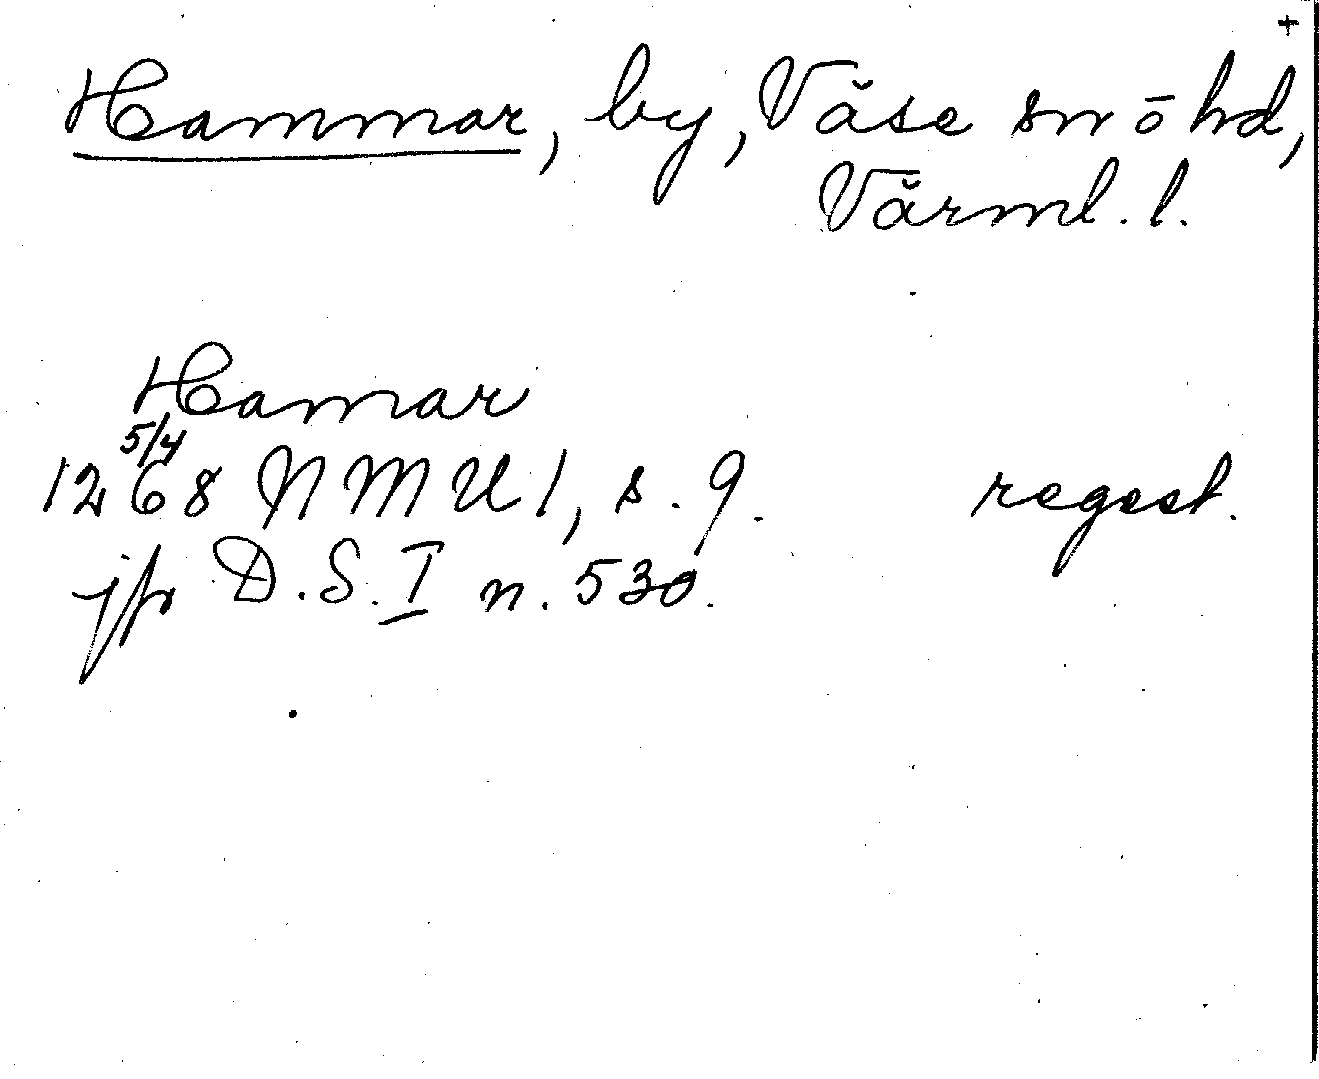 +
Hammar, by, Väse sn ō hd,
Värml. l.
Hamar
5/4
1268 NMU 1, s. 9. regest.
jfr D.S. I n. 530.